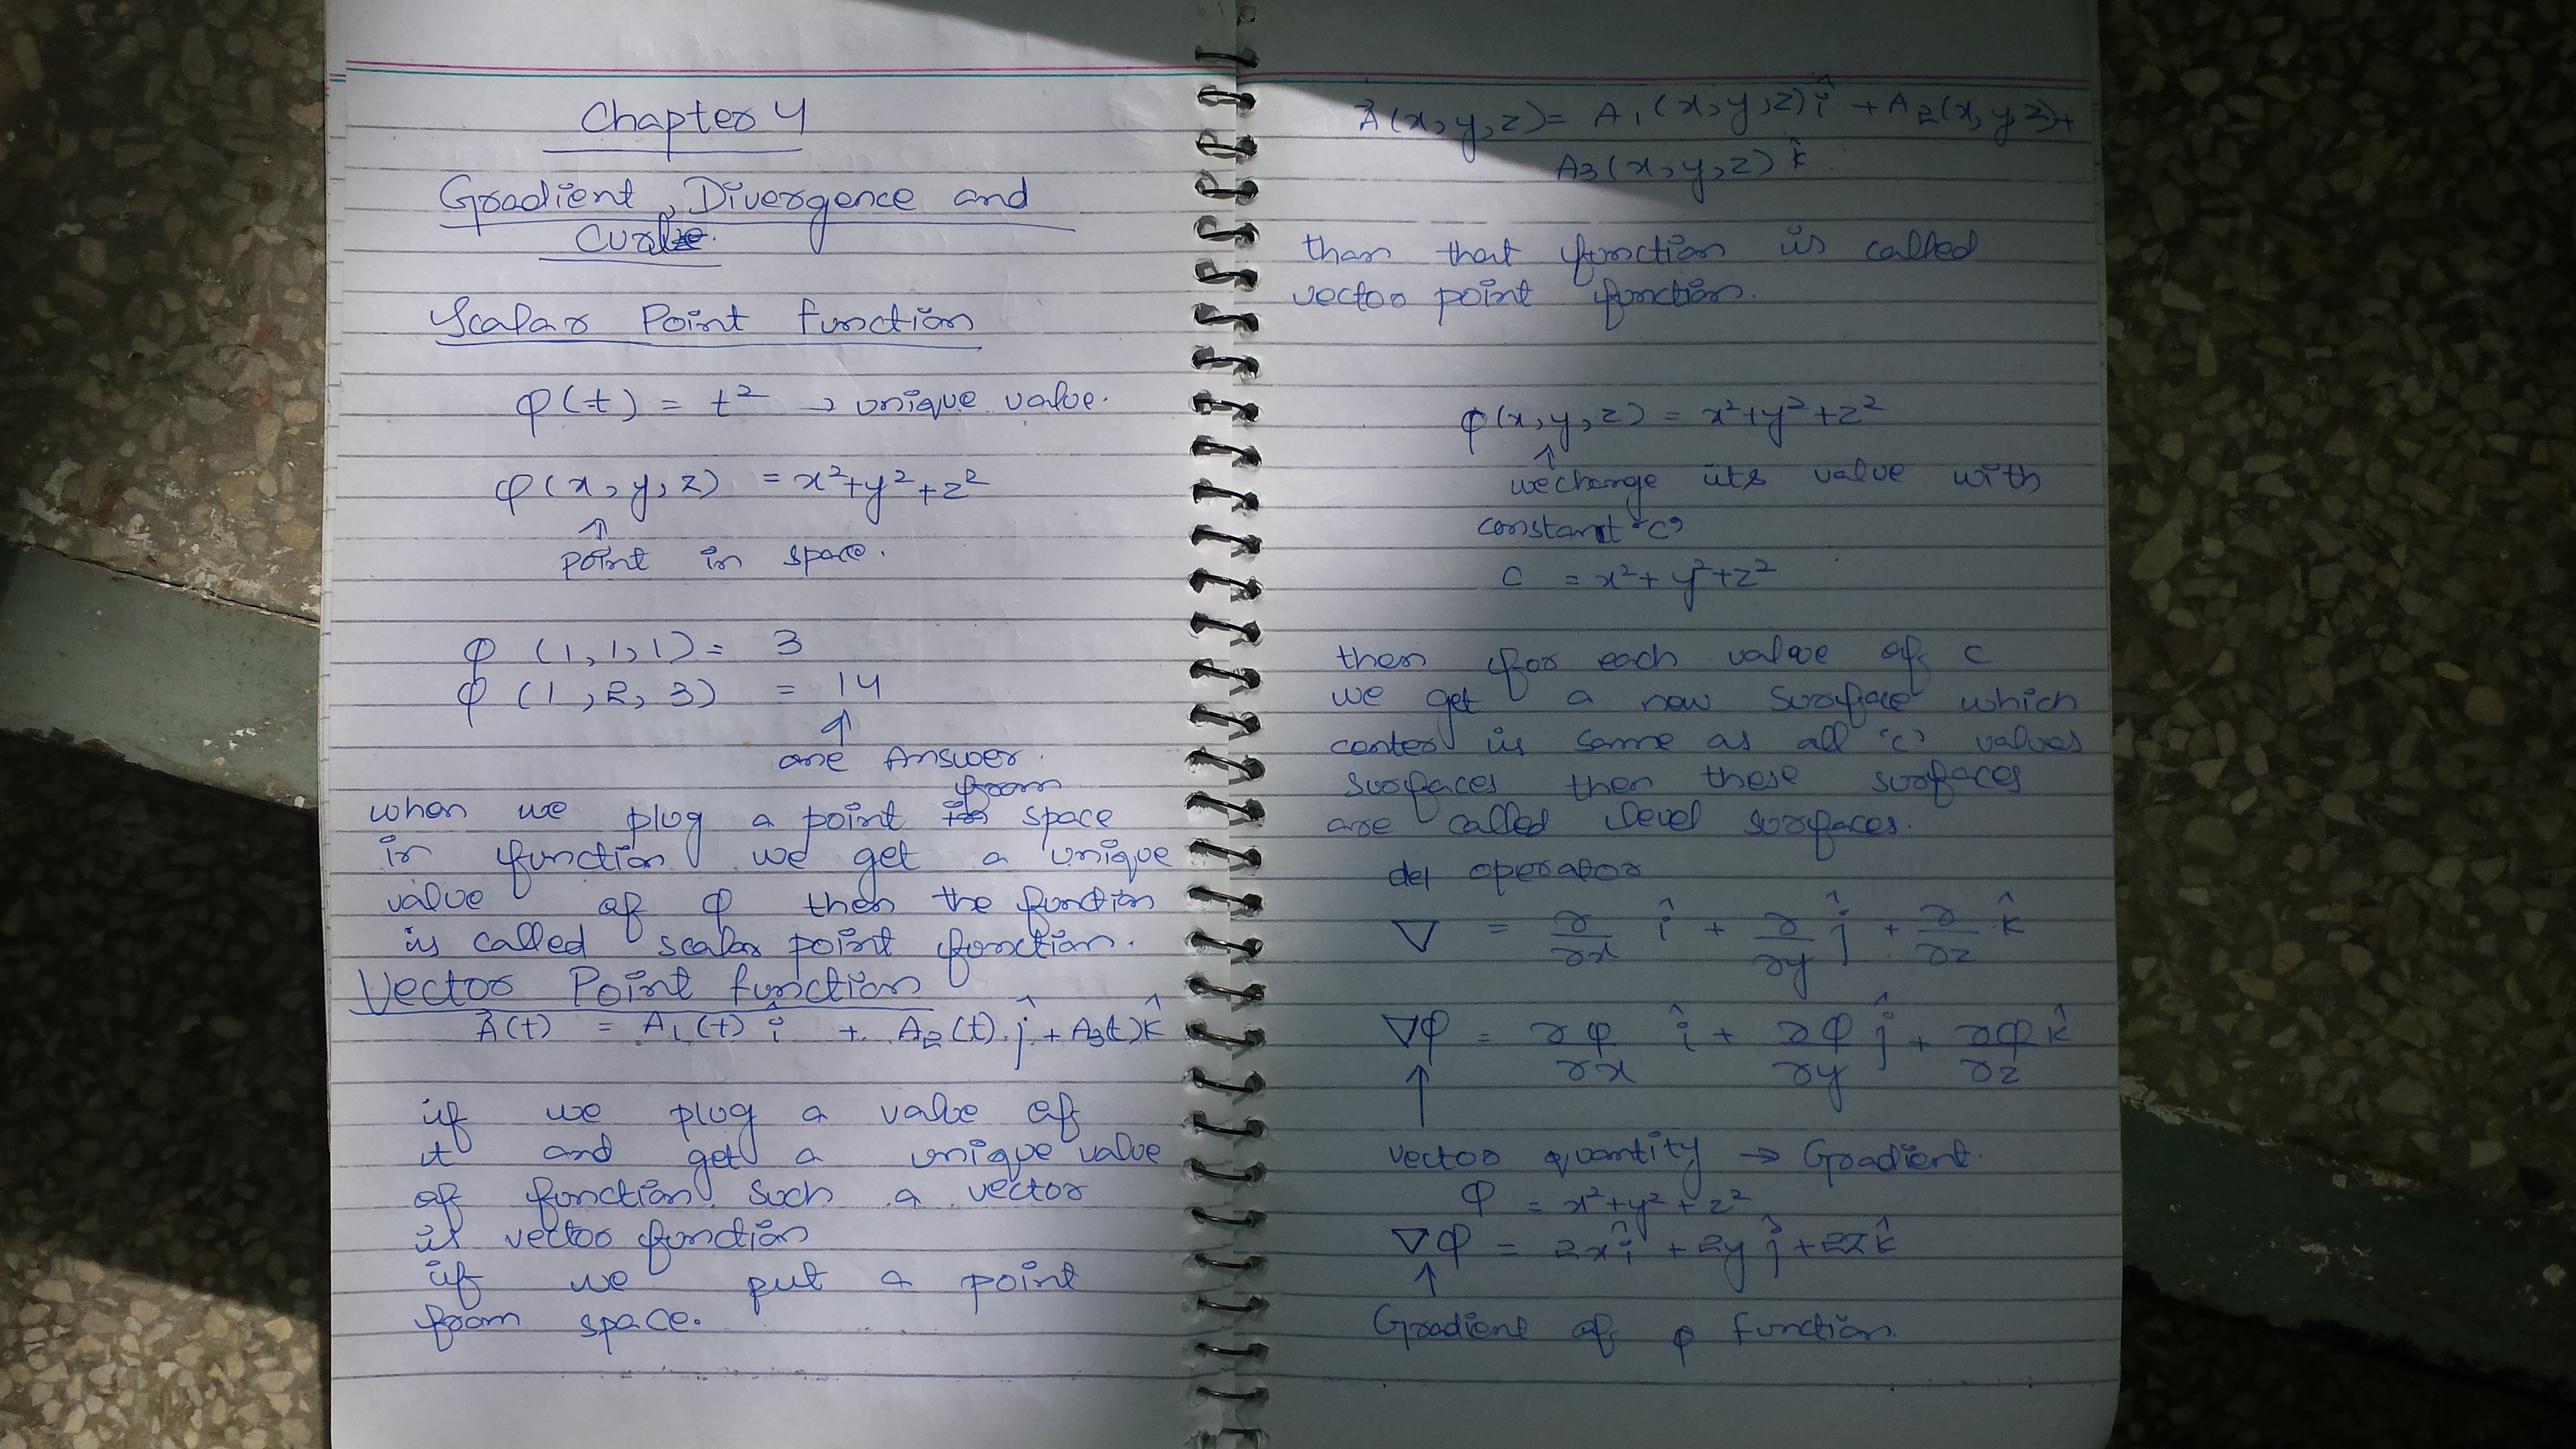 Chapter 4
Gradient, Divergence and
Curl
Scalar Point function
φ(t) = t² → unique value.
φ(x, y, z) = x²+y²+z²
↑
point in space.
φ (1, 1, 1) = 3
φ (1, 2, 3) = 14
↑
one Answer.
from
when we plug a point space
in function we get a unique
value of φ then the function
is called scalar point function.
Vector Point function
A⃗(t) = A₁(t) î + A₂(t) ĵ + A₃(t) k̂
if we plug a value of
t and get a unique value
of function such a vector
is vector function
if we put a point
from space.
A⃗(x, y, z) = A₁(x, y, z) î + A₂(x, y, z) +
A₃(x, y, z) k̂
than that function is called
vector point function.
φ(x, y, z) = x²+y²+z²
↑
we change its value with
constant "c"
c = x²+y²+z²
then for each value of c
we get a new surface which
center is same as all 'c' values
surfaces then these surfaces
are called level surfaces.
del operator
∇ = ∂/∂x î + ∂/∂y ĵ + ∂/∂z k̂
∇φ = ∂φ/∂x î + ∂φ/∂y ĵ + ∂φ/∂z k̂
↑
vector quantity → Gradient.
φ = x²+y²+z²
∇φ = 2xî + 2yĵ + 2zk̂
↑
Gradient of φ function.